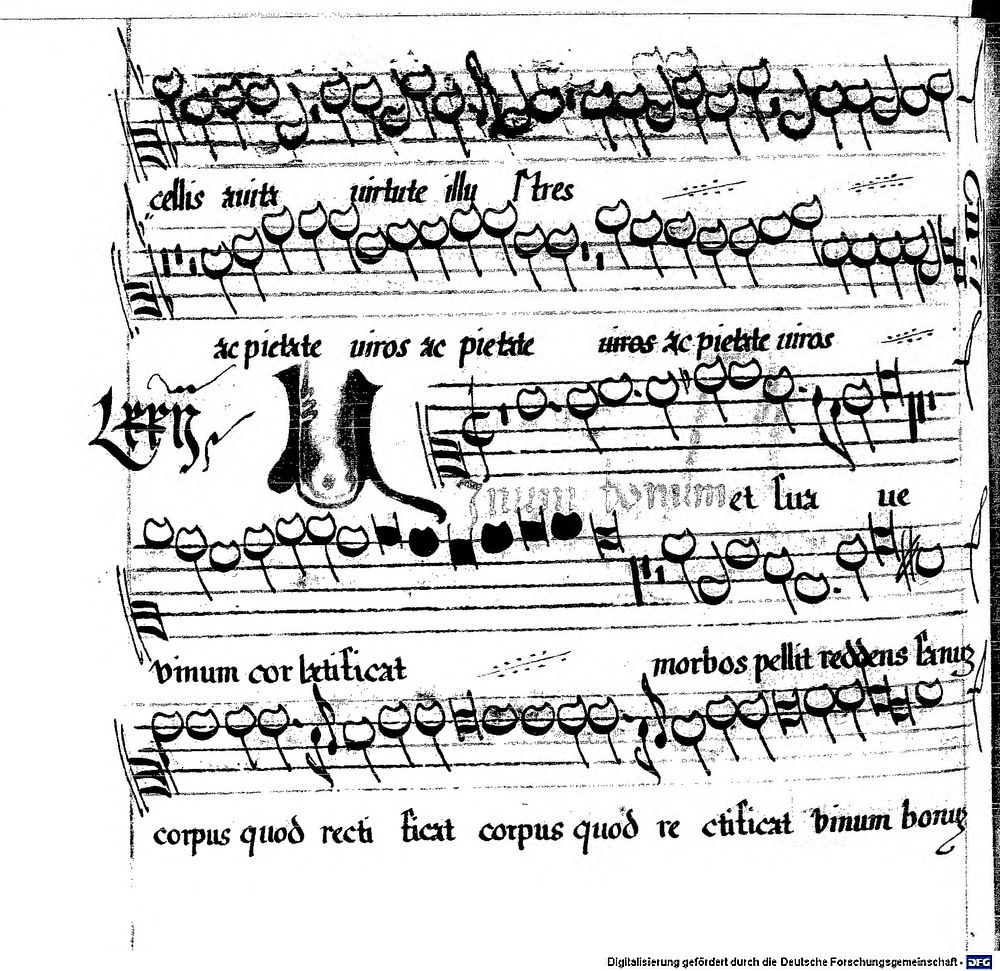 cellis auita uirtute illu stres
ac pietate uiros ac pietate uiros ac pietate uiros
Vinum bonum et sua ue
vinum cor lætificat morbos pellit reddens sanuʒ
corpus quod recti ficat corpus quod re ctificat vinum bonuʒ
Digitalisierung gefördert durch die Deutsche Forschungsgemeinschaft - DFG